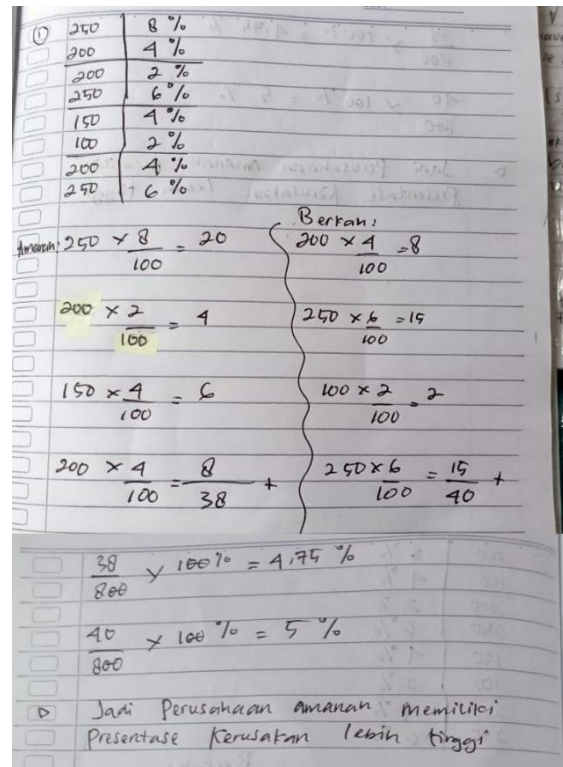 ① 250 | 8 %
200 | 4 %
200 | 2 %
250 | 6 %
150 | 4 %
100 | 2 %
200 | 4 %
250 | 6 %
Amanah: 250 × 8/100 = 20
200 × 2/100 = 4
150 × 4/100 = 6
200 × 4/100 = 8/38 +
Berkah:
200 × 4/100 = 8
250 × 6/100 = 15
100 × 2/100 = 2
250 × 6/100 = 15/40 +
38/800 × 100 % = 4,75 %
40/800 × 100 % = 5 %
▷ Jadi Perusahaan amanah memiliki
Presentase Kerusakan lebih tinggi